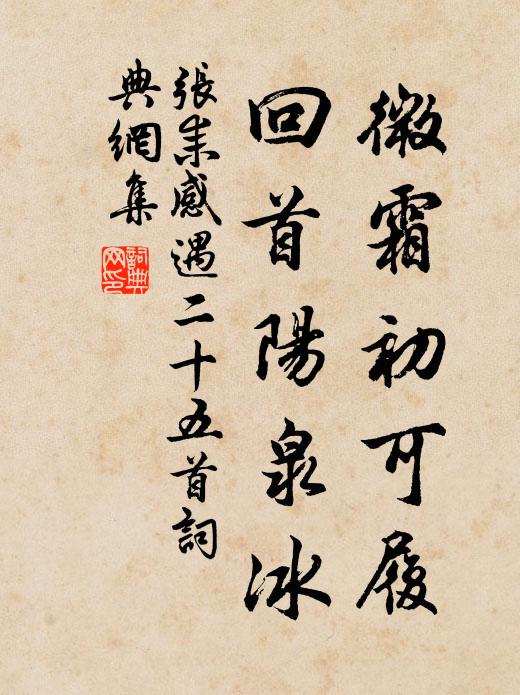 微霜初可履
回首陽泉冰
張耒感遇二十五首詞
典網集
詞典
网印